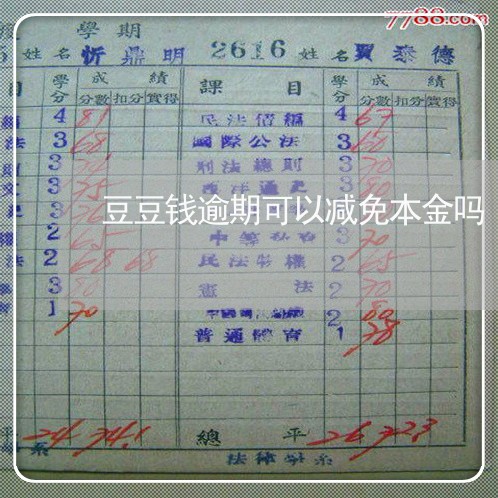 7788.com
學期
姓名 忻鼎明 2616 姓名 賈泰德
目 學分 成績 課目 學分 成績
分數 扣分 實得 分數 扣分 實得
4 81 民法債編 4 67
法 3 68 國際公法 3 60
3 刑法總則 3 70
文 3 75 西洋通史 3
豆豆钱逾期可以减免本金吗
2 65 3 70
法 2 68 68 民法物權 2 65
3 憲法 2 70
1 70 2 80
普通體育 1 78
24 74.1 總平 26 72.3
系 法律學系